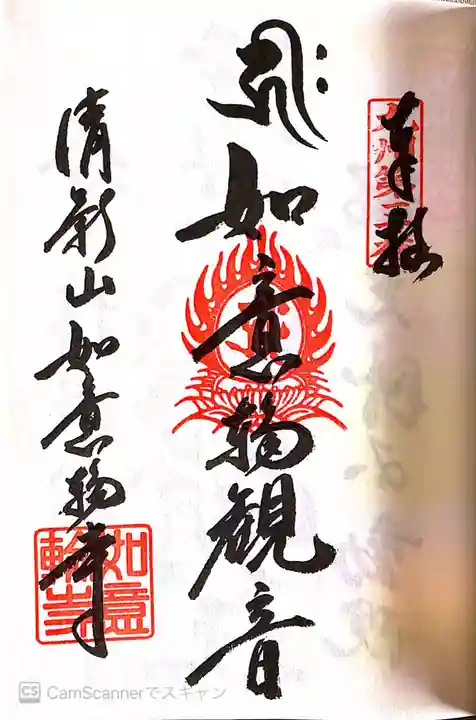 奉拝
如意輪観音
清影山如意輪寺
如意輪寺
CS CamScannerでスキャン